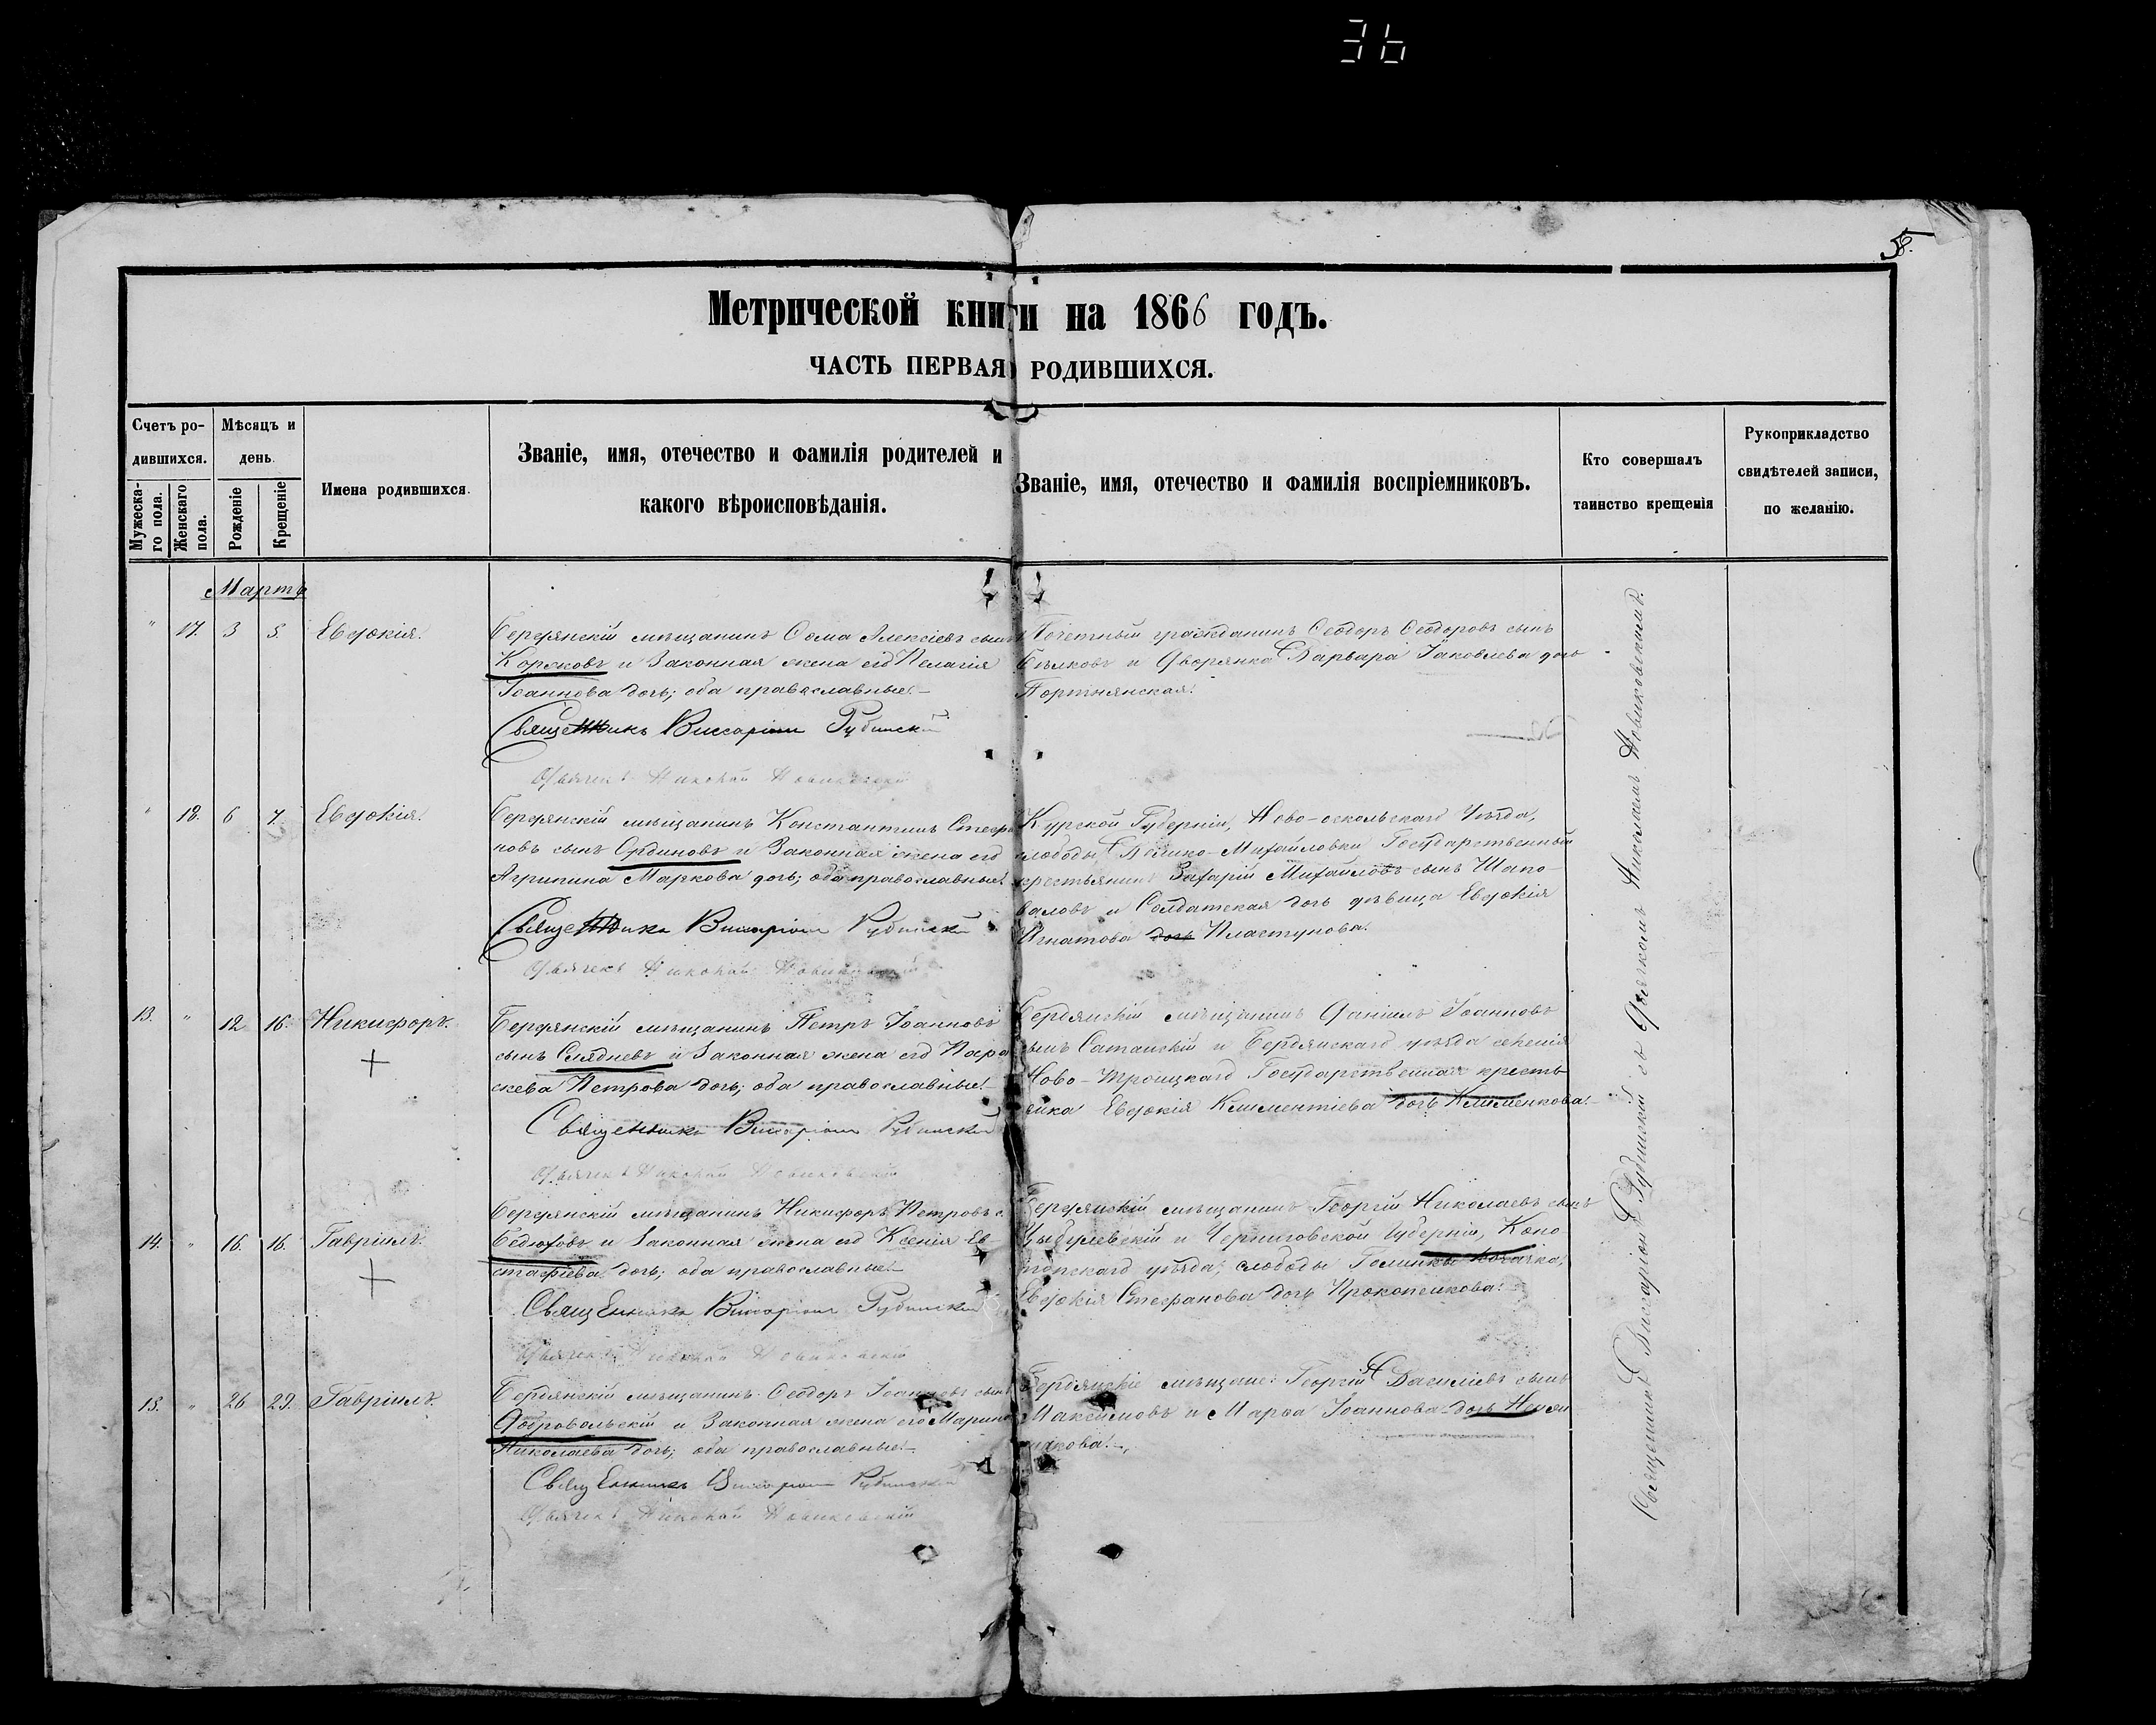 36
58.
Метрической книги на 1866 годъ.
ЧАСТЬ ПЕРВАЯ РОДИВШИХСЯ.
Счетъ ро-
дившихся.
Мужеска-
го пола.
Женскаго
пола.
Мѣсяцъ и
день.
Рожденіе
Крещеніе
Имена родившихся.
Званіе, имя, отечество и фамилія родителей и
какого вѣроисповѣданія.
Званіе, имя, отечество и фамилія воспріемниковъ.
Кто совершалъ
таинство крещенія
Рукоприкладство
свидѣтелей записи,
по желанію.
Мартъ
" 17. 3 5. Евдокія.
Бердянскій мѣщанинъ Ѳома Алексіевъ сынъ
Коржовъ и Законная жена его Пелагія
Іоаннова дочь; оба православные.
Священникъ Виссаріонъ Рубинскій
Дьячекъ Николай Новиковскій
Почетный гражданинъ Ѳеодоръ Ѳеодоровъ сынъ
Бѣлковъ и Дворянка Варвара Іаковлева дочь
Портнянская.
" 18. 6 7. Евдокія.
Бердянскій мѣщанинъ Константинъ Стефа
новъ сынъ и Законная жена его
Агрипина Маркова дочь; оба православные.
Священникъ Виссаріонъ Рубинскій
Дьячекъ Николай Новиковскій
Курской Губерніи, Ново-оскольскаго Уѣзда,
слободы Велико-Михайловки Государственный
крестьянинъ Захарій Михайловъ сынъ Шапо-
валовъ и Солдатская дочь дѣвица Евдокія
Игнатова дочь Пластунова.
13. " 12 16. Никифоръ.
Бердянскій мѣщанинъ Петръ Іоанновъ
сынъ Слядневъ и Законная жена его Пара
скева Петрова дочь; оба православные.
Священникъ Виссаріонъ Рубинскій
Дьячекъ Николай Новиковскій
Бердянскій мѣщанинъ Даніилъ Іоанновъ
сынъ и Бердянскаго уѣзда селенія
Ново-Троицкаго Государственная кресть
янка Евдокія Климентіева дочь Клименкова.
14. " 16. 16. Гавріилъ.
Бердянскій мѣщанинъ Никифоръ Петровъ с.
и Законная жена его Ксенія Ев-
стафіева дочь; оба православные.
Священникъ Виссаріонъ Рубинскій
Дьячекъ Николай Новиковскій
Бердянскій мѣщанинъ Георгій Николаевъ сынъ
Цыбулевскій и Черниговской Губерніи, Коно-
топскаго уѣзда, слободы Голинки
Евдокія Стефанова дочь Прокопенкова.
15. " 26 29. Гавріилъ.
Бердянскій мѣщанинъ Ѳеодоръ Іоанновъ сынъ
Добровольскій и Законная жена его Марина
Николаева дочь; оба православные.
Священникъ Виссаріонъ Рубинскій
Дьячекъ Николай Новиковскій
Бердянскіе мѣщане: Георгій Василіевъ сынъ
Максимовъ и Марѳа Іоаннова дочь
Священникъ Виссаріонъ Рубинскій съ Дьячкомъ Николаемъ Новиковскимъ.